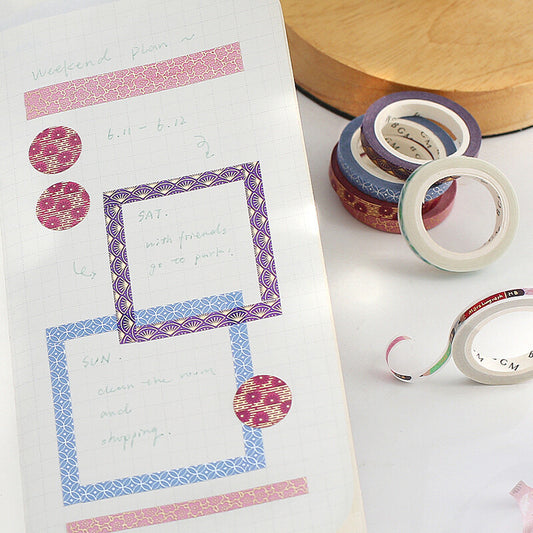 Weekend Plan ~
6.11 - 6.12
SAT.
with friends
go to park.
SUN.
clean the room
and
shopping.
BGM
BGM
BGM